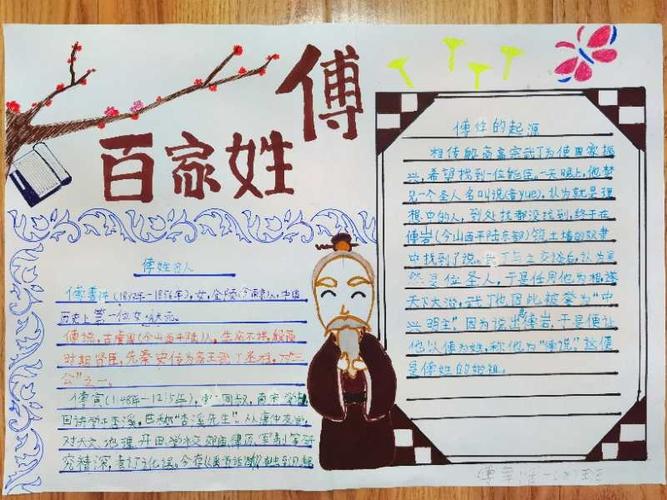 傅
百家姓
傅姓名人
傅善祥(1832年-1856年),女,金陵(今南京)人,中国
历史上第一位女状元。
傅说,古虞国(今山西平陆)人,生卒不详,殷商
时期贤臣,先秦史传为商王武丁丞相,为"三
公"之一。
傅寅(1148年-1215年),字同叔,南宋学
"杏溪先生"。
对天文、地理、井田、学校、郊庙、律历、军制
究精深,
傅姓的起源
相传殷商高宗武丁为使国家振
兴,希望找到一位能臣。一天晚上,他梦
见一个圣人名叫说(音yuè),认为就是理
想中的人,到处找都没找到,终于在
傅岩(今山西平陆东部)筑土墙的奴隶
中找到了说。武丁与之交谈后,认为果
然是位圣人,于是任用他为相,
天下大治,武丁也因此被誉为"中
兴明主"。因为说出傅岩,于是便让
他以傅为姓,称他为"傅说",这便
是傅姓的始祖。